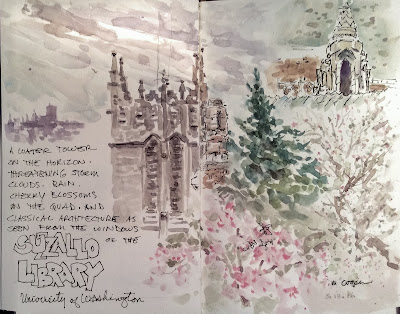 A WATER TOWER
ON THE HORIZON.
THREATENING STORM
CLOUDS. RAIN.
CHERRY BLOSSOMS
ON THE QUAD. AND
CLASSICAL ARCHITECTURE AS
SEEN FROM THE WINDOWS
OF THE
SUZZALLO
LIBRARY
University of Washington